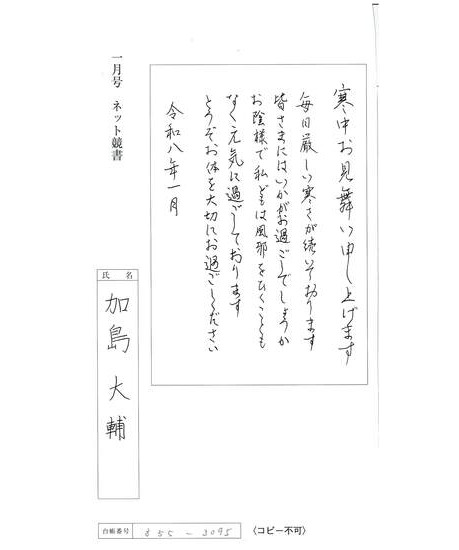 寒中お見舞い申し上げます
毎日厳しい寒さが続いております
皆さまにはいかがお過ごしでしょうか
お陰様で私どもは風邪をひくことも
なく元気に過ごしております
どうぞお体を大切にお過ごしください
令和八年一月
一月号 ネット競書
氏名
加島大輔
台帳番号 855-3095
〈コピー不可〉